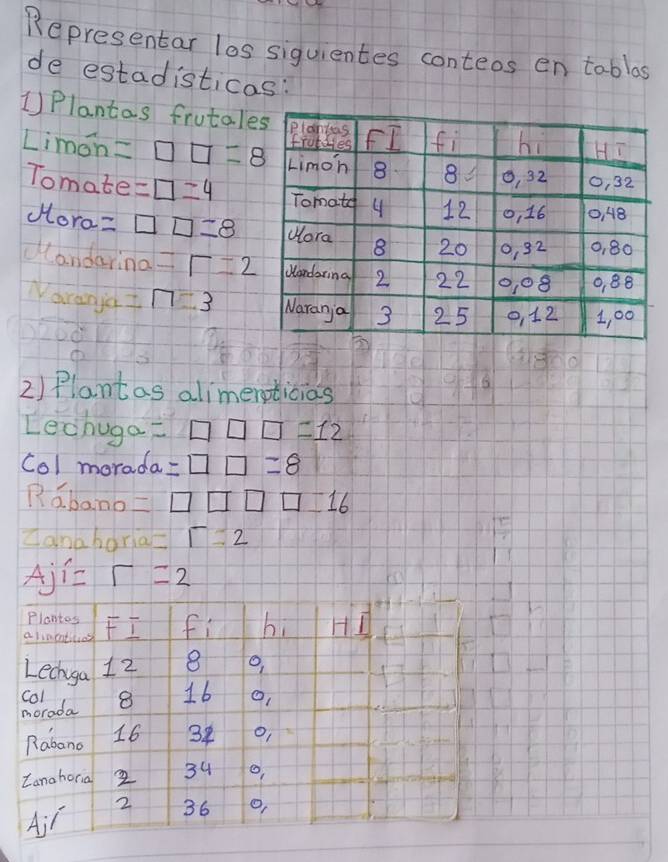 Representar los siguientes conteos en tablas
de estadísticas:
1) Plantas frutales
Limón = □ □ = 8
Tomate = □ = 4
Mora = □ □ = 8
Mandarina = Γ = 2
Naranja = Π = 3
Plantas frutales FI fi hi HI
Limón 8 8 0,32 0,32
Tomate 4 12 0,16 0,48
Mora 8 20 0,32 0,80
Mandarina 2 22 0,08 0,88
Naranja 3 25 0,12 1,00
2) Plantas alimenticias
Lechuga = □ □ □ = 12
Col morada = □ □ = 8
Rábano = □ □ □ □ = 16
Zanahoria = Γ = 2
Ají = Γ = 2
Plantas alimenticias FI fi hi HI
Lechuga 12 8 0,
Col morada 8 16 0,
Rábano 16 32 0,
Zanahoria 2 34 0,
Ají 2 36 0,